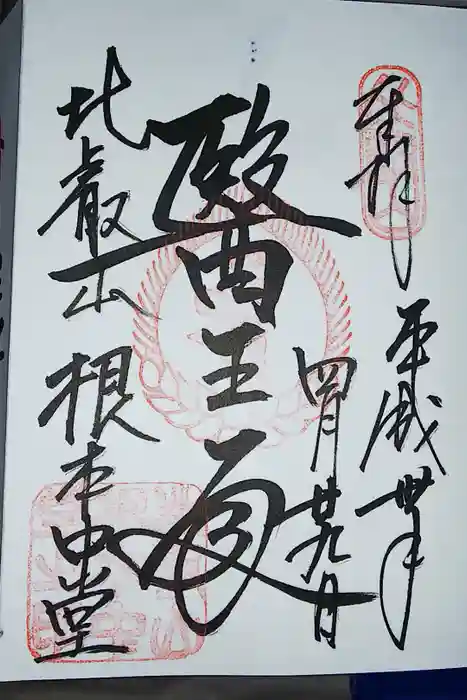 奉拝 平成丗年
四月廿九日
醫王殿
比叡山 根本中堂